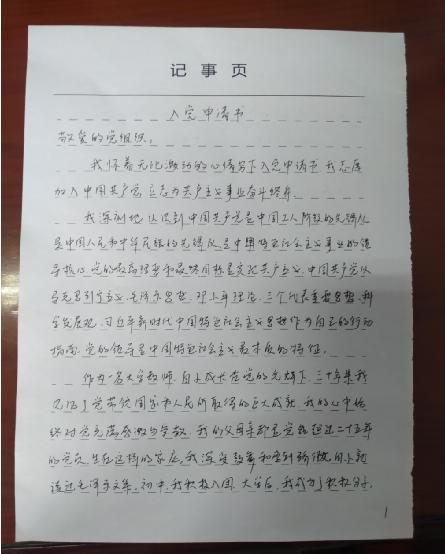 记事页
入党申请书
敬爱的党组织:
我怀着无比激动的心情写下入党申请书,我志愿
加入中国共产党,立志为共产主义事业奋斗终身。
我深刻地认识到中国共产党是中国工人阶级的先锋队
是中国人民和中华民族的先锋队,是中国特色社会主义事业的领
导核心,党的最高理想和最终目标是实现共产主义,中国共产党以
马克思列宁主义、毛泽东思想、邓小平理论、三个代表重要思想、科
学发展观、习近平新时代中国特色社会主义思想作为自己的行动
指南,党的领导是中国特色社会主义最本质的特征。
作为一名大学教师,自小成长在党的光辉下,三十年来我
见证了党带领国家和人民所取得的巨大成就,我的心中始
终对党充满感激与崇敬,我的父母亲都是党龄超过二十五年
的党员,生在这样的家庭,我深受教育和感到骄傲,自小就
读过毛泽东文集,初中,我积极入团,大学后,我成为了积极分子,
1